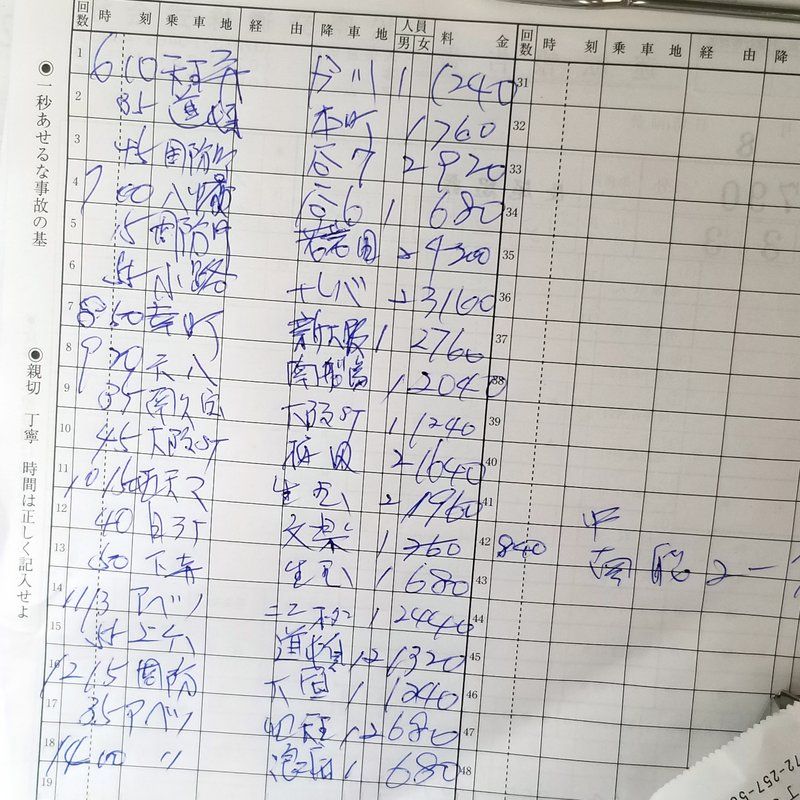 回数 時刻 乗車地 経由 降車地 人員 男 女 料金 回数 時刻 乗車地 経由 降
1 6 10 天王寺 今川 1 1240 31
2 35 道頓 本町 1 760 32
3 45 周防町 谷9 2 920 33
4 7 00 八幡 谷6 1 680 34
5 15 周防町 2 4300 35
6 55 小路 ナンバ 2 3160 36
7 8 50 幸町 新大阪 1 2760 37
8 9 20 天八 南船場 1 2040 38
9 35 南久宝 大阪ST 1 1240 39
10 45 大阪ST 桜田 2 1640 40
11 10 15 西天マ 生玉 2 1960 41
12 40 日3T 文楽 1 760 42 840 中
13 50 下寺 生玉 1 680 43 南船2-
14 11 13 アベノ 1 2440 44
15 55 上六 道頓 1 2 1320 45
16 12 15 周防 1 1240 46
17 35 アベノ 四天王 1 2 680 47
18 14 00 〃 浪速 1 680 48
19
●一秒あせるな事故の基
●親切 丁寧 時間は正しく記入せよ
72-257-56